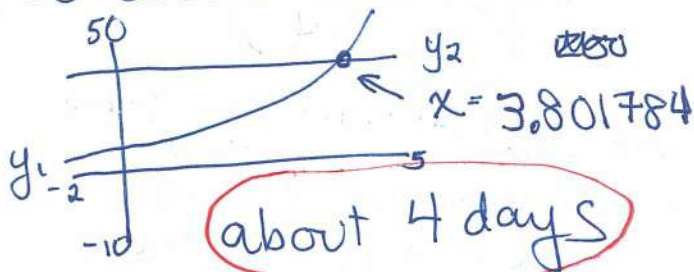 50
y2
x = 3.801784
y1
-2
5
-10
about 4 days